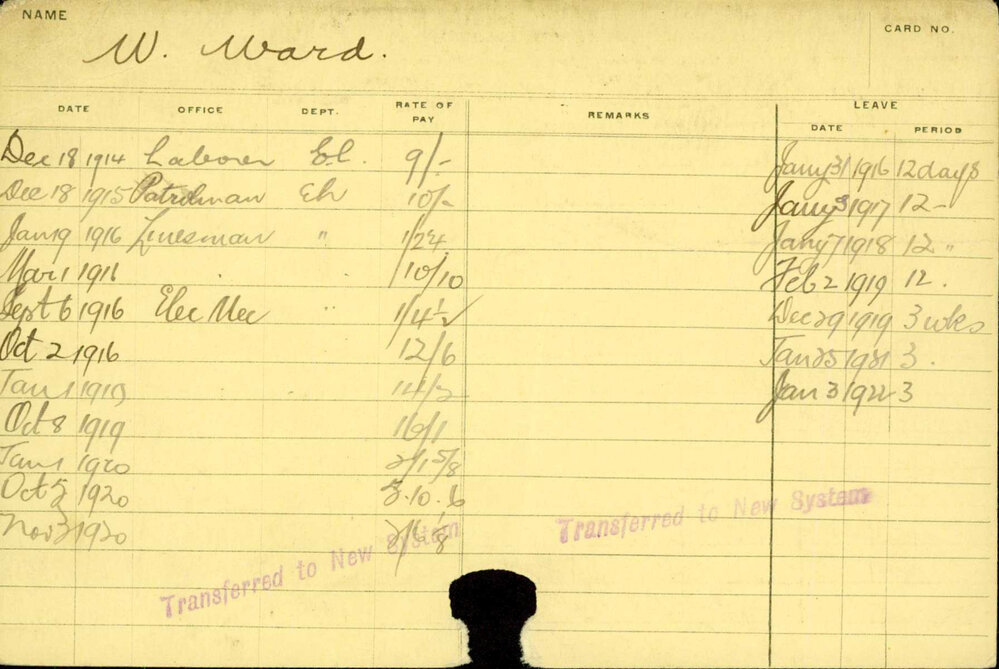 NAME
CARD NO.
W. Ward.
DATE OFFICE DEPT. RATE OF PAY REMARKS LEAVE
DATE PERIOD
Dec 18 1914 Laborer El. 9/- Jany 31 1916 12 days
Dec 18 1915 Patrolman 10/- Jany 3 1917 12 -
Jan 19 1916 Linesman " Jany 7 1918 12 "
Mar 1 1916 10/10 Feb 2 1919 12.
Sept 6 1916 Elec Mec " 1/4½ Dec 29 1919 3 wks
Oct 2 1916 12/6 Jan 25 1921 3.
Jan 1 Jan 3 1922 3
Oct 8 1919 16/1
Jan 1 1920
Oct 5 1920
Nov 3 1920
Transferred to New System
Transferred to New System